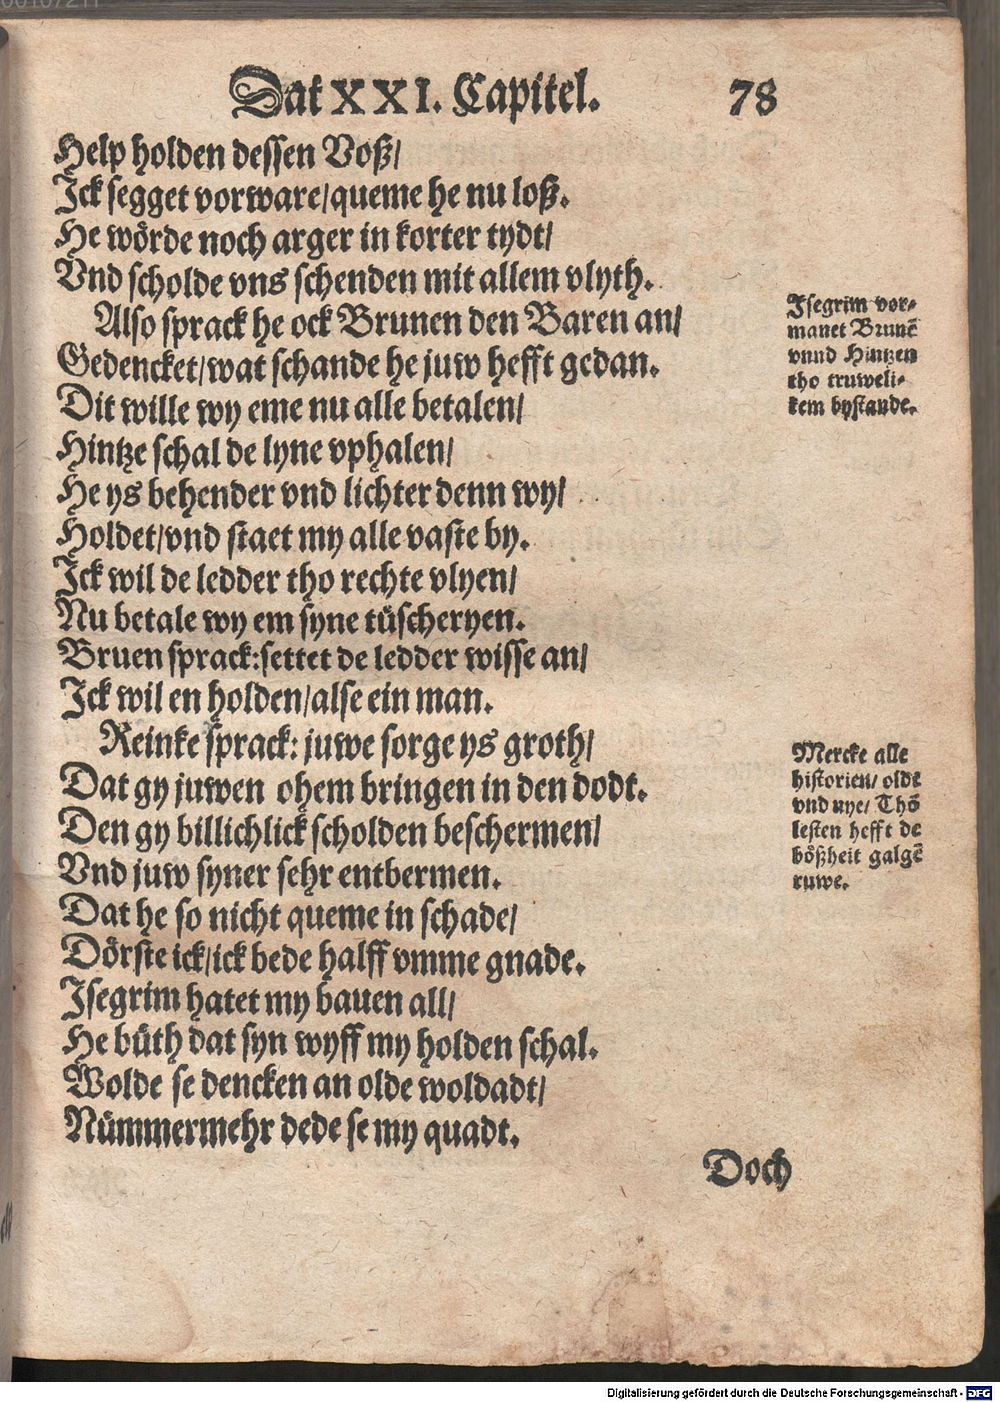 Dat XXI. Capitel. 78
Help holden dessen Voß/
Ick segget vorware/queme he nu loß.
He wörde noch arger in korter tydt/
Vnd scholde vns schenden mit allem vlyth.
Also sprack he ock Brunen den Baren an/
Gedencket/wat schande he juw hefft gedan.
Dit wille wy eme nu alle betalen/
Hintze schal de lyne vphalen/
He ys behender vnd lichter denn wy/
Holdet/vnd staet my alle vaste by.
Ick wil de ledder tho rechte vlyen/
Nu betale wy em syne tüscheryen.
Bruen sprack:settet de ledder wisse an/
Ick wil en holden/alse ein man.
Reinke sprack: juwe sorge ys groth/
Dat gy juwen ohem bringen in den dodt.
Den gy billichlick scholden beschermen/
Vnd juw syner sehr entbermen.
Dat he so nicht queme in schade/
Dörste ick/ick bede halff vmme gnade.
Isegrim hatet my bauen all/
He büth dat syn wyff my holden schal.
Wolde se dencken an olde woldadt/
Nümmermehr dede se my quadt.
Doch
Isegrim vor-
manet Brunē
vnnd Hintzen
tho truweli-
kem bystande.
Mercke alle
historien/ olde
vnd nye/ Thō
lesten hefft de
bößheit galgē
ruwe.
Digitalisierung gefördert durch die Deutsche Forschungsgemeinschaft - DFG